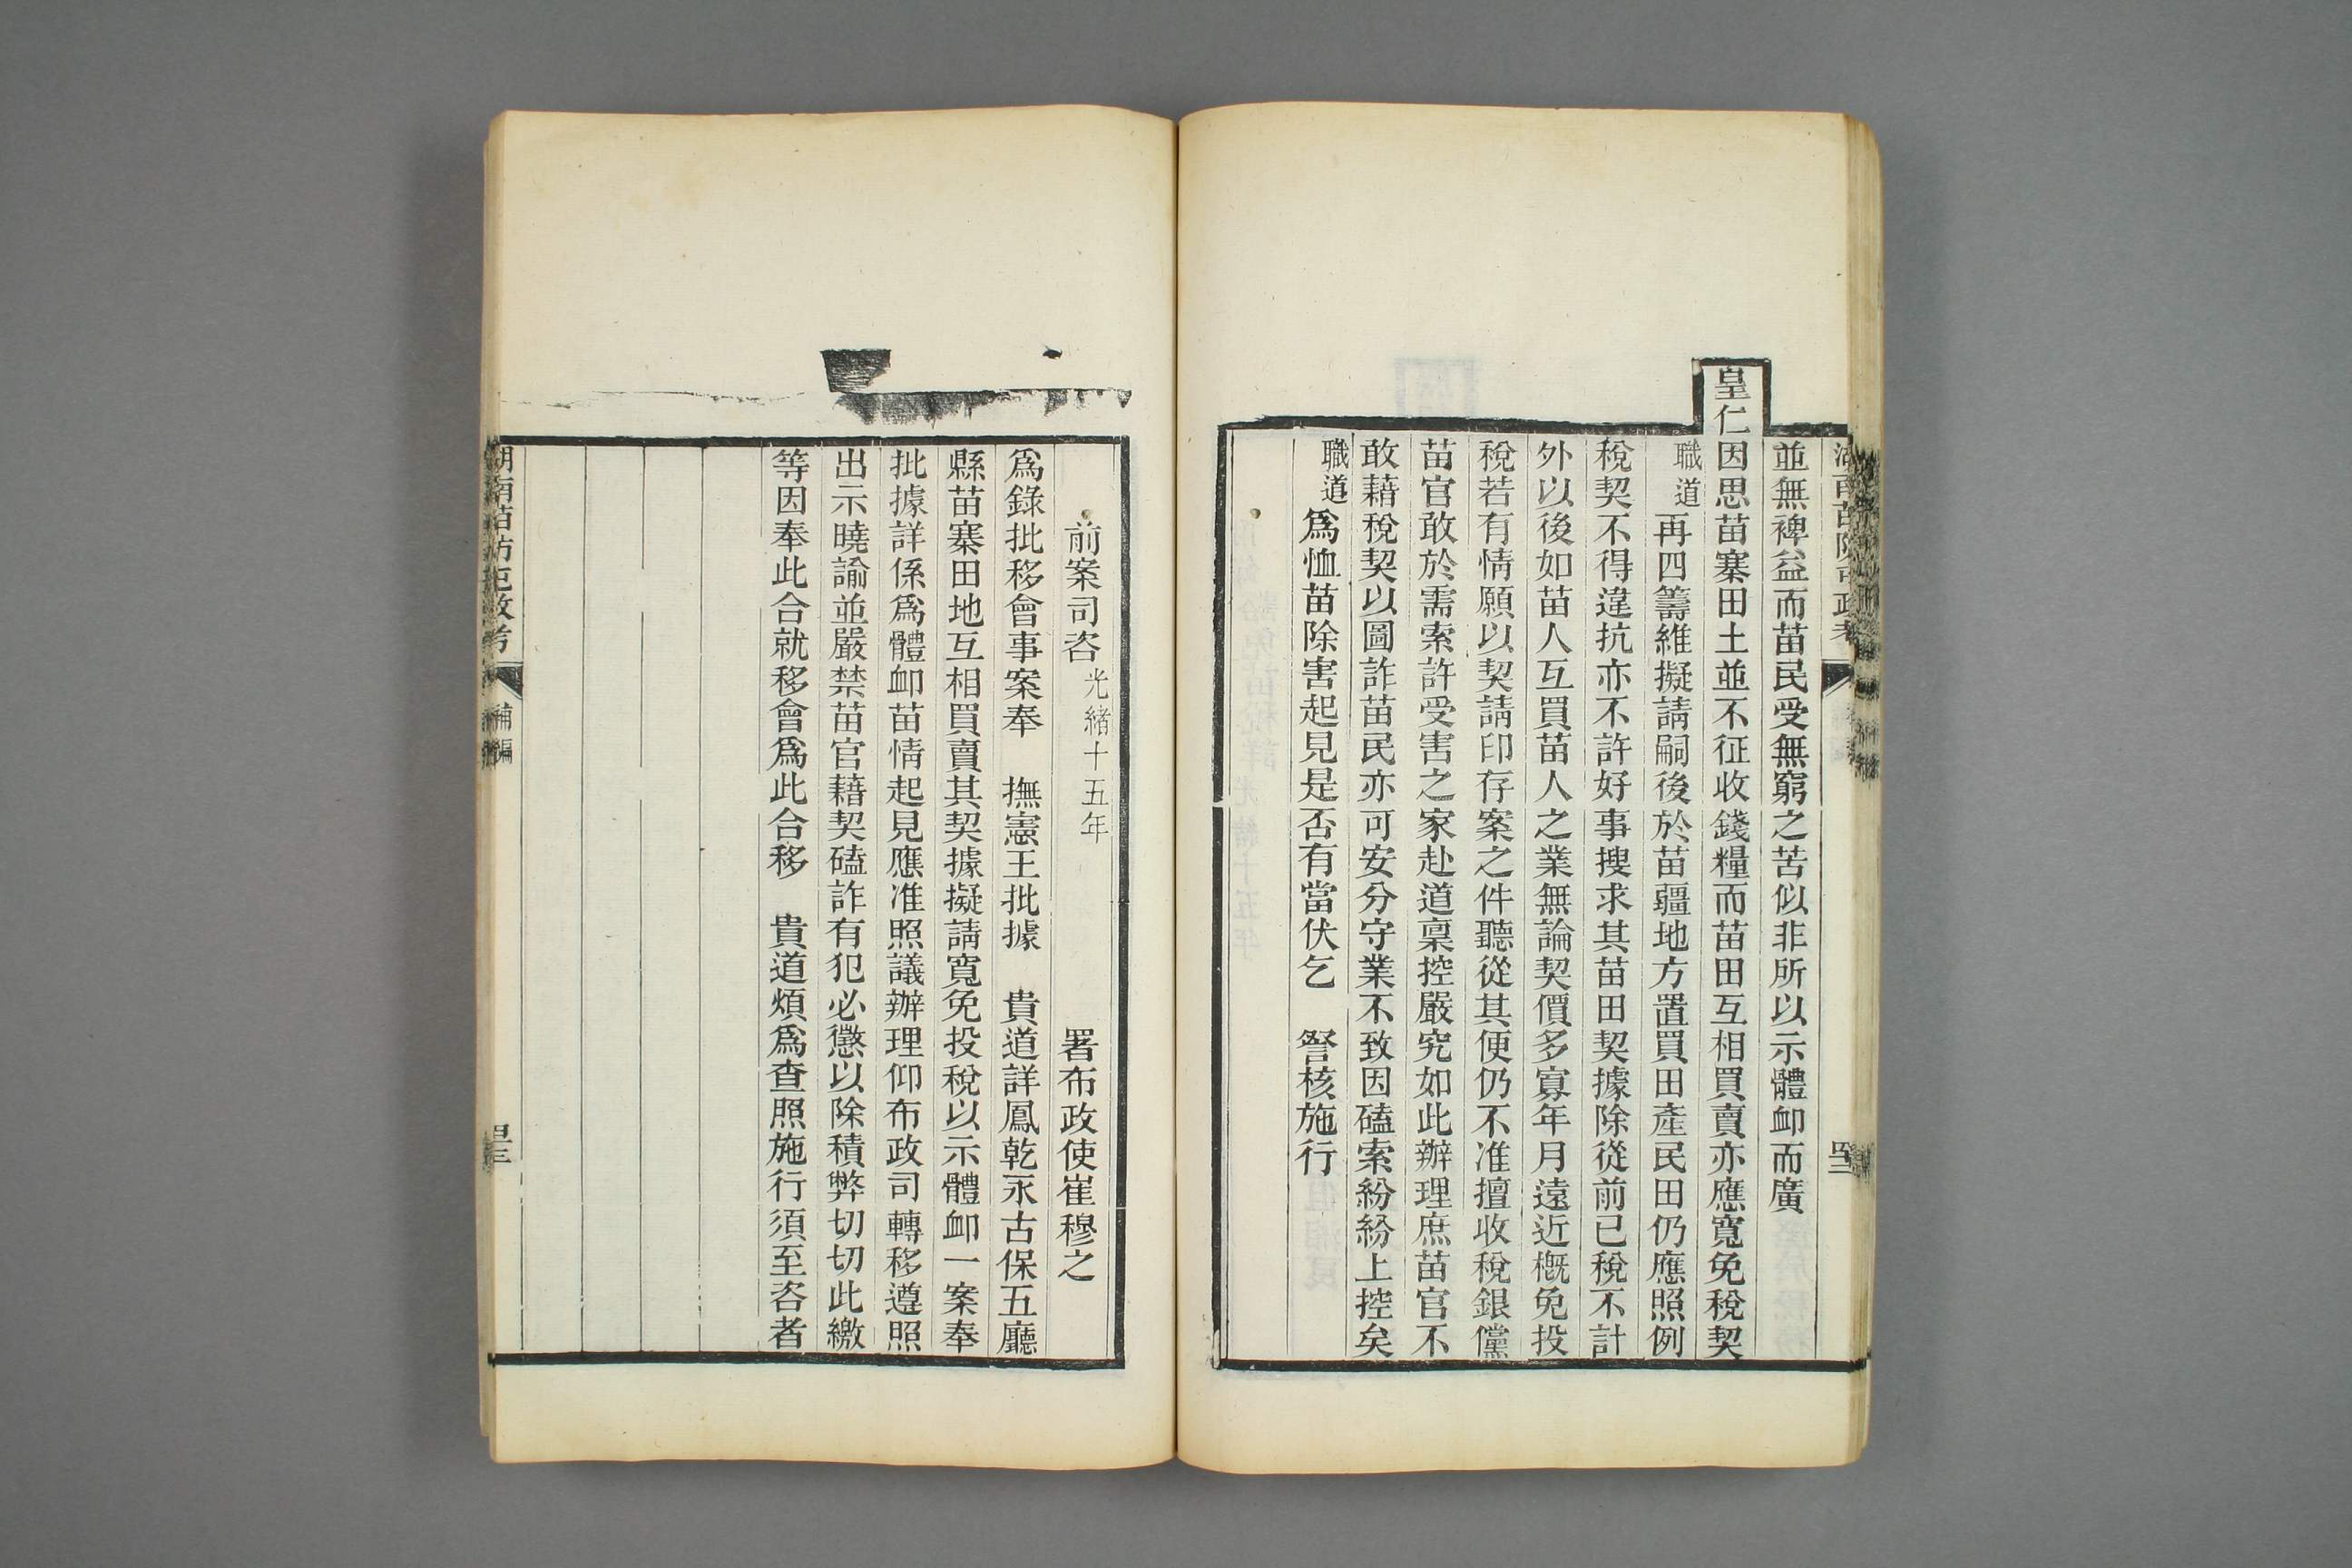 並無裨益而苗民受無窮之苦似非所以示體卹而廣
皇仁因思苗寨田土並不征收錢糧而苗田互相買賣亦應寬免稅契
職道再四籌維擬請嗣後於苗疆地方置買田產民田仍應照例
稅契不得違抗亦不許好事搜求其苗田契據除從前已稅不計
外以後如苗人互買苗人之業無論契價多寡年月遠近槪免投
稅若有情願以契請印存案之件聽從其便仍不准擅收稅銀儻
苗官敢於需索許受害之家赴道稟控嚴究如此辦理庶苗官不
敢藉稅契以圖詐苗民亦可安分守業不致因磕索紛紛上控矣
職道爲恤苗除害起見是否有當伏乞　詧核施行
前案司咨光緒十五年　署布政使崔穆之
爲錄批移會事案奉　撫憲王批據　貴道詳鳳乾永古保五廳
縣苗寨田地互相買賣其契據擬請寬免投稅以示體卹一案奉
批據詳係爲體卹苗情起見應准照議辦理仰布政司轉移遵照
出示曉諭並嚴禁苗官藉契磕詐有犯必懲以除積弊切切此繳
等因奉此合就移會爲此合移　貴道煩爲查照施行須至咨者
湖南苗防屯政考
補編